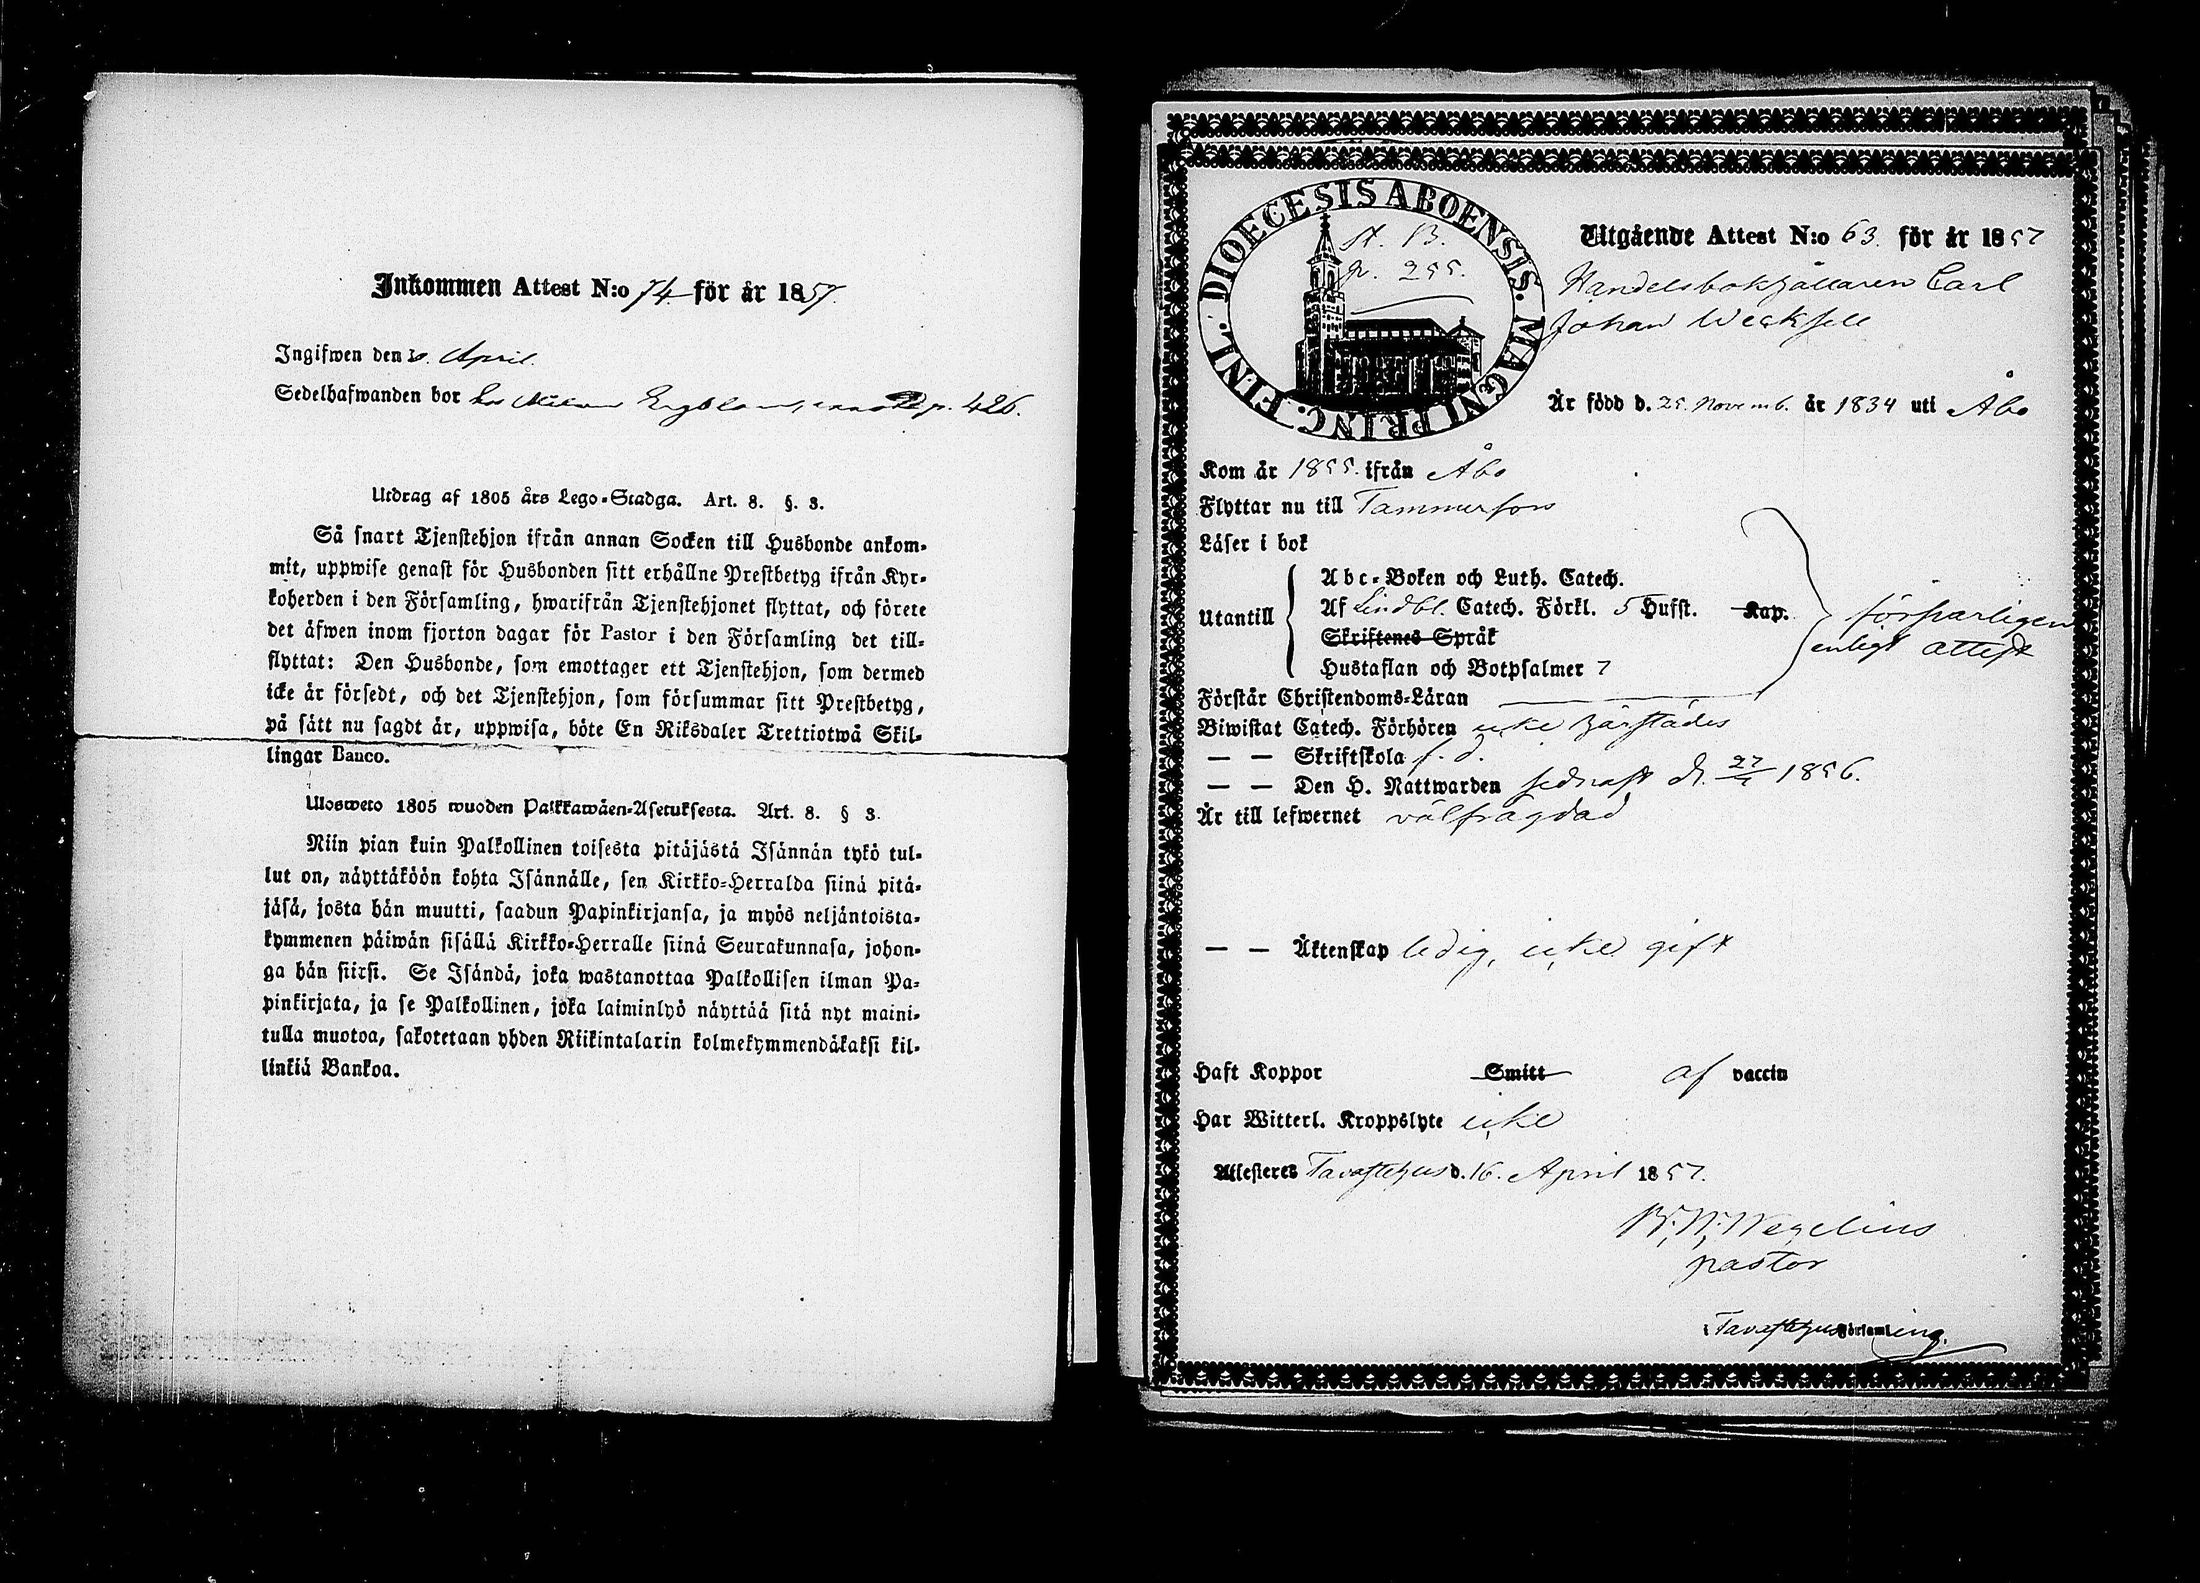 Inkommen Attest N:o 74 för år 1857.
Ingifwen den April.
Sedelhafwanden bor hos p. 426.
Utdrag af 1805 års Lego-Stadga. Art. 8. §. 3.
Så snart Tjenstehjon ifrån annan Socken till Husbonde ankom-
mit, uppwise genast för Husbonden sitt erhållne Prestbetyg ifrån Kyr-
koherden i den Församling, hwarifrån Tjenstehjonet flyttat, och förete
det äfwen inom fjorton dagar för Pastor i den Församling det till-
flyttat: Den Husbonde, som emottager ett Tjenstehjon, som dermed
icke är försedt, och det Tjenstehjon, som försummar sitt Prestbetyg,
på sätt nu sagdt är, uppwisa, böte En Riksdaler Trettiotwå Skil-
lingar Banco.
Ulosweto 1805 wuoden Palkkawäen-Asetuksesta. Art. 8. § 3.
Niin pian kuin Palkollinen toisesta pitäjästä Isännän tykö tul-
lut on, näyttäköön kohta Isännälle, sen Kirkko-Herralda siinä pitä-
jäsä, josta hän muutti, saadun Papinkirjansa, ja myös neljäntoista-
kymmenen päiwän sisällä Kirkko-Herralle siinä Seurakunnasa, johon-
ga hän siirsi. Se Isändä, joka wastanottaa Palkollisen ilman Pa-
pinkirjata, ja se Palkollinen, joka laiminlyö näyttää sitä nyt maini-
tulla muotoa, sakotetaan yhden Riikintalarin kolmekymmendäkaksi kil-
linkiä Bankoa.
DIOECESIS ABOENSIS. MAGNI PRINC. FINL.
St. B.
p. 255.
Utgående Attest N:o 63. för år 1857
Handelsbokhållaren Carl
Johan Wecksell
Är född d. 25. Novemb. år 1834 uti Åbo
Kom år 1855. ifrån Åbo
Flyttar nu till Tammerfors
Läser i bok
Utantill
Abc-Boken och Luth. Catech.
Af Lindbl. Catech. Förkl. 5 Hufst. Kap.
Skriftenes Språk
Hustaflan och Botpsalmer 7
försvarligen
enligt attest
Förstår Christendoms-Läran
Biwistat Catech. Förhören icke härstädes
— — Skriftskola f. d.
— — Den H. Nattwarden sednast d. 1856.
Är till lefwernet välfrägdad
— — Äktenskap ledig, icke gift
Haft Koppor Smitt af vaccin
Har Witterl. Kroppslyte icke
Attesteres Tavastehus d. 16. April 1857.
Wegelius
pastor
Tavastehus Församling.